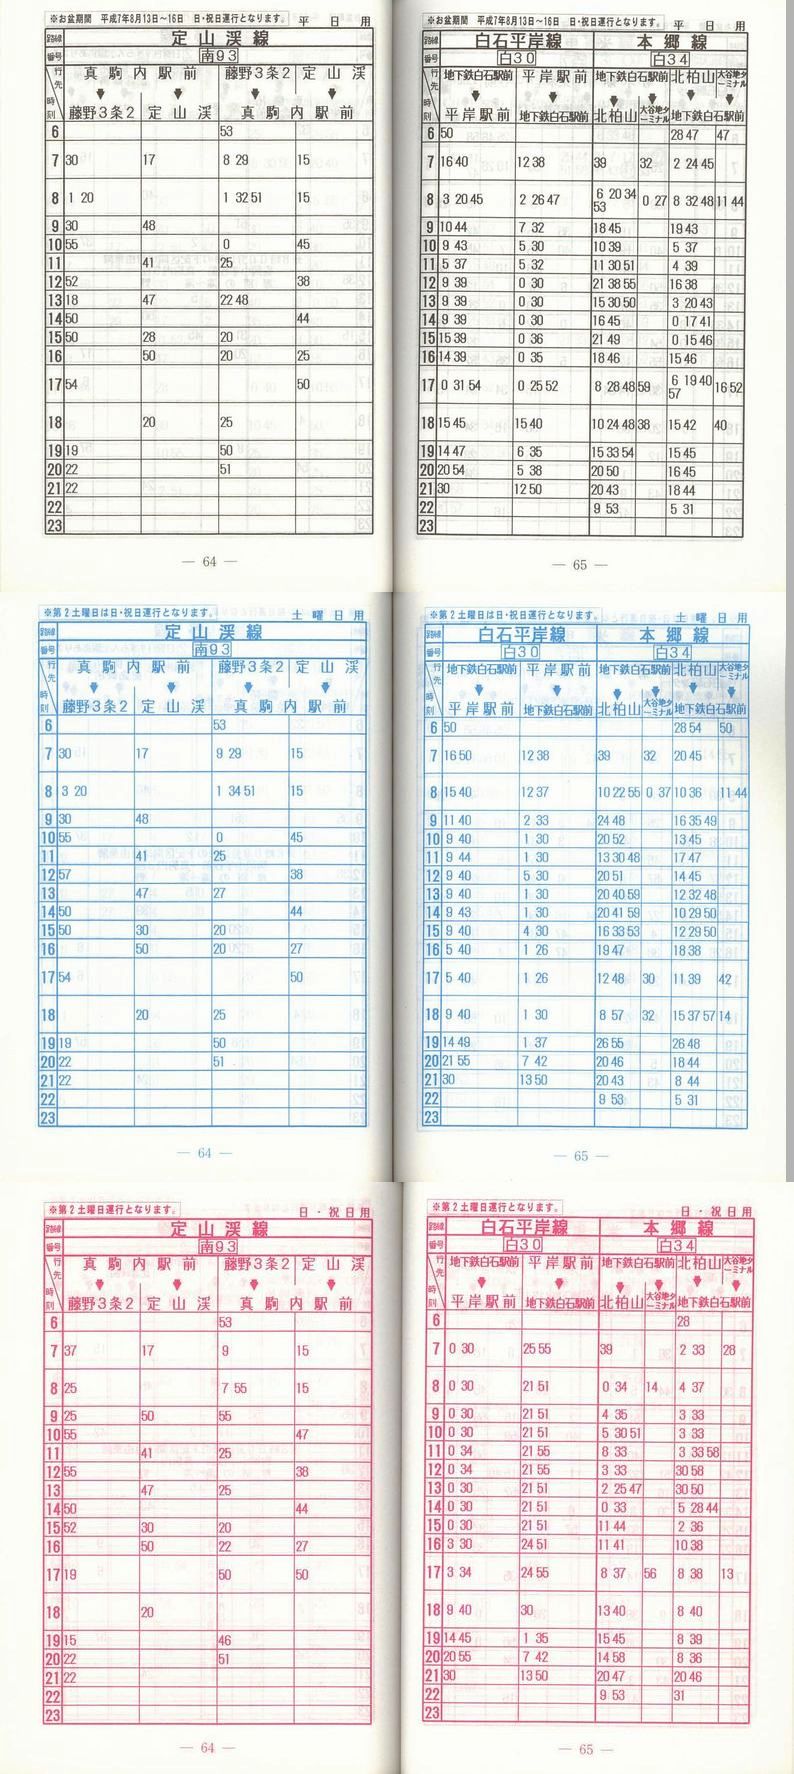 ※お盆期間 平成7年8月13日～16日 日・祝日運行となります。 平日用
路線 定山渓線
番号 南93
行先 真駒内駅前 藤野3条2 定山渓
時刻 藤野3条2 定山渓 真駒内駅前
6 53
7 30 17 8 29 15
8 1 20 1 32 51 15
9 30 48
10 55 0 45
11 41 25
12 52 38
13 18 47 22 48
14 50 44
15 50 28 20
16 50 20 25
17 54 50
18 20 25
19 19 50
20 22 51
21 22
22
23
― 64 ―
※お盆期間 平成7年8月13日～16日 日・祝日運行となります。 平日用
路線 白石平岸線 本郷線
番号 白30 白34
行先 地下鉄白石駅前 平岸駅前 地下鉄白石駅前 北柏山 大谷地ターミナル
時刻 平岸駅前 地下鉄白石駅前 北柏山 大谷地ターミナル 地下鉄白石駅前
6 50 28 47 47
7 16 40 12 38 39 32 2 24 45
8 3 20 45 2 26 47 6 20 34 53 0 27 8 32 48 11 44
9 10 44 7 32 18 45 19 43
10 9 43 5 30 10 39 5 37
11 5 37 5 32 11 30 51 4 39
12 9 39 0 30 21 38 55 16 38
13 9 39 0 30 15 30 50 3 20 43
14 9 39 0 30 16 45 0 17 41
15 15 39 0 36 21 49 0 15 46
16 14 39 0 35 18 46 15 46
17 0 31 54 0 25 52 8 28 48 59 6 19 40 57 16 52
18 15 45 15 40 10 24 48 38 15 42 40
19 14 47 6 35 15 33 54 15 45
20 20 54 5 38 20 50 16 45
21 30 12 50 20 43 18 44
22 9 53 5 31
23
― 65 ―
※第2土曜日は日・祝日運行となります。 土曜日用
路線 定山渓線
番号 南93
行先 真駒内駅前 藤野3条2 定山渓
時刻 藤野3条2 定山渓 真駒内駅前
6 53
7 30 17 9 29 15
8 3 20 1 34 51 15
9 30 48
10 55 0 45
11 41 25
12 57 38
13 47 27
14 50 44
15 50 30 20
16 50 20 27
17 54 50
18 20 25
19 19 50
20 22 51
21 22
22
23
― 64 ―
※第2土曜日は日・祝日運行となります。 土曜日用
路線 白石平岸線 本郷線
番号 白30 白34
行先 地下鉄白石駅前 平岸駅前 地下鉄白石駅前 北柏山 大谷地ターミナル
時刻 平岸駅前 地下鉄白石駅前 北柏山 大谷地ターミナル 地下鉄白石駅前
6 50 28 54 50
7 16 50 12 38 39 32 20 45
8 15 40 12 37 10 22 55 0 37 10 36 11 44
9 11 40 2 33 24 48 16 35 49
10 9 40 1 30 20 52 13 45
11 9 44 1 30 13 30 48 17 47
12 9 40 5 30 20 51 14 45
13 9 40 1 30 20 40 59 12 32 48
14 9 43 1 30 20 41 59 10 29 50
15 9 40 4 30 16 33 53 12 29 50
16 5 40 1 26 19 47 18 38
17 5 40 1 26 12 48 30 11 39 42
18 9 40 1 30 8 57 32 15 37 57 14
19 14 49 1 37 26 55 26 48
20 21 55 7 42 20 46 18 44
21 30 13 50 20 43 8 44
22 9 53 5 31
23
― 65 ―
※第2土曜日運行となります。 日・祝日用
路線 定山渓線
番号 南93
行先 真駒内駅前 藤野3条2 定山渓
時刻 藤野3条2 定山渓 真駒内駅前
6 53
7 37 17 9 15
8 25 7 55 15
9 25 50 55
10 55 47
11 41 25
12 55 38
13 47 25
14 50 44
15 52 30 20
16 50 22 27
17 19 50 50
18 20
19 15 46
20 22 51
21 22
22
23
― 64 ―
※第2土曜日運行となります。 日・祝日用
路線 白石平岸線 本郷線
番号 白30 白34
行先 地下鉄白石駅前 平岸駅前 地下鉄白石駅前 北柏山 大谷地ターミナル
時刻 平岸駅前 地下鉄白石駅前 北柏山 大谷地ターミナル 地下鉄白石駅前
6 28
7 0 30 25 55 39 2 33 28
8 0 30 21 51 0 34 14 4 37
9 0 30 21 51 4 35 3 33
10 0 30 21 51 5 30 51 3 33
11 0 34 21 55 8 33 3 33 58
12 0 34 21 55 3 33 30 58
13 0 30 21 51 2 25 47 30 50
14 0 30 21 51 0 33 5 28 44
15 0 30 21 51 11 44 2 36
16 3 30 24 51 11 41 10 38
17 3 34 24 55 8 37 56 8 38 13
18 9 40 30 13 40 8 40
19 14 45 1 35 15 45 8 39
20 20 55 7 42 14 58 8 36
21 30 13 50 20 47 20 46
22 9 53 31
23
― 65 ―